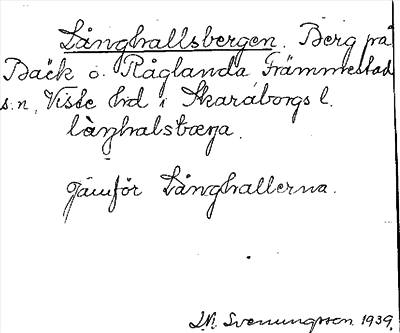 Långhallsbergen. Berg på
Bäck o. Råglanda Främmestad
s:n, Viste hd i Skaraborgs l.
làŋhalsbærja.
Jämför Långhallerna.
J.A. Svenungsson 1939.